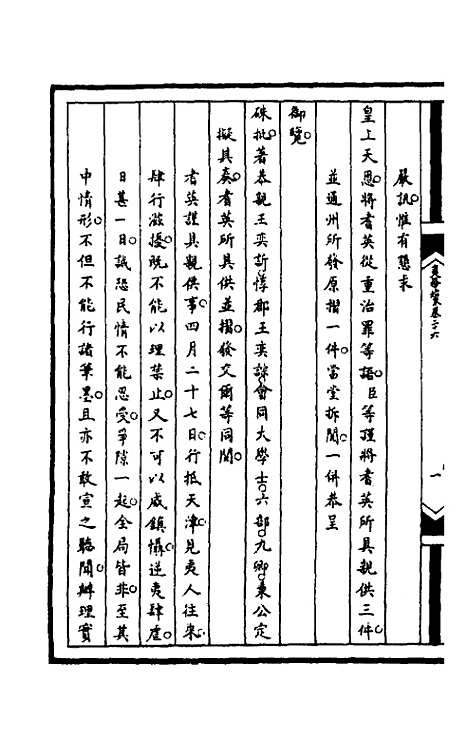 嚴訊惟有懇求
皇上天恩。將耆英從重治罪等語。臣等謹將耆英所具親供三件。
並通州所發原摺一件。當堂拆閱。一併恭呈
御覽。
硃批。著恭親王奕訢。惇郡王奕誴。會同大學士。六部。九卿。秉公定
擬具奏。耆英所具供並摺。發交爾等同閱。
耆英謹具親供。事四月二十七日。行抵天津。見夷人往來。
肆行滋擾。既不能以理禁止。又不可以威鎮懾。逆夷肆虐。
日甚一日。誠恐民情不能忍受。爭隙一起。全局皆非。至其
中情形。不但不能行諸筆墨。且亦不敢宣之聽聞。辦理實
卷六
一